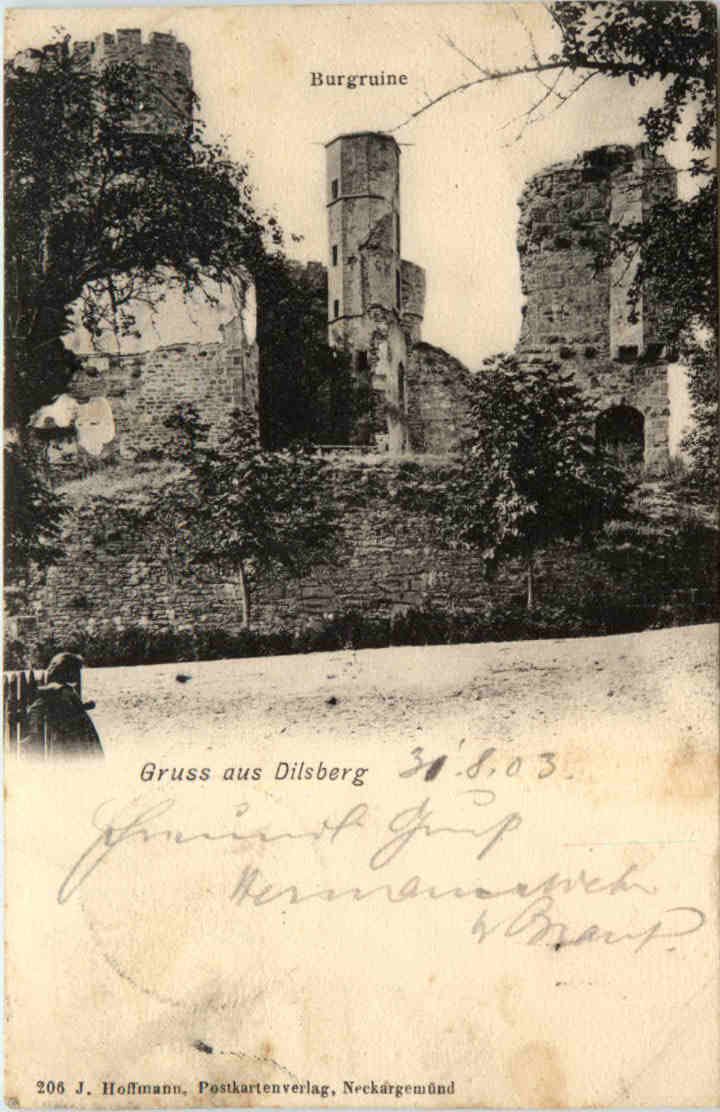 Burgruine
Gruss aus Dilsberg 31.8.03.
Freundl Gruß
Hermann
206 J. Hoffmann, Postkartenverlag, Neckargemünd